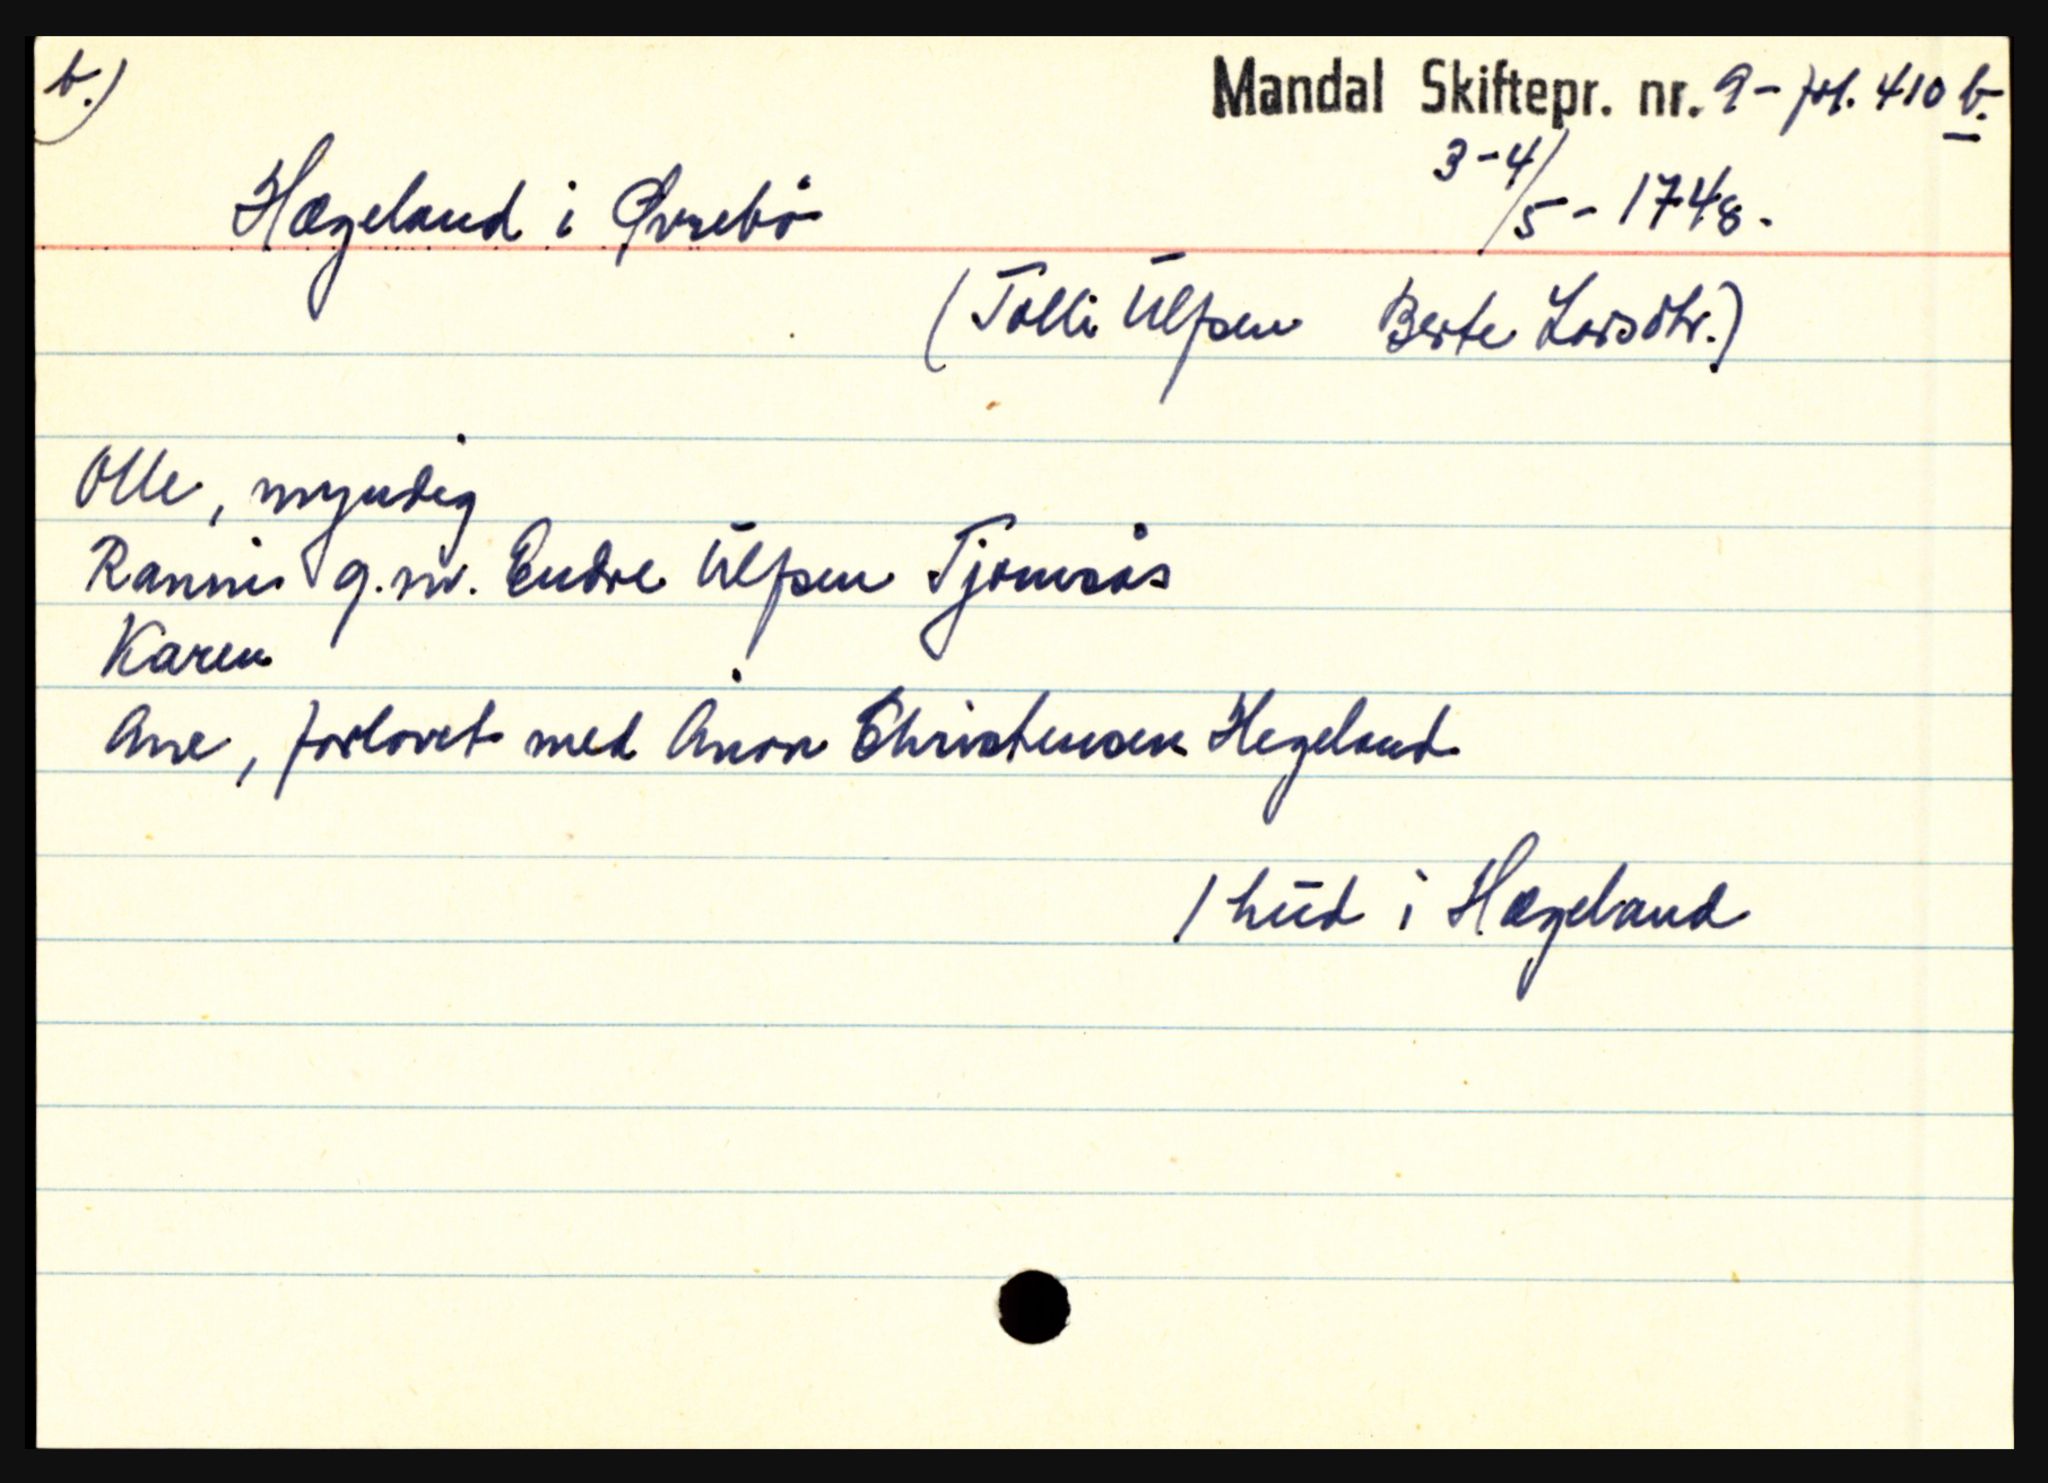 b.)
Mandal Skiftepr. nr. 9 - fol. 410 b.
3-4/5 - 1748.
Hægeland i Øvrebö
(Tolli Ulfsen Berte Larsdtr.)
Olle, myndig
Ranni g.m. Endre Ulfsen Tjomsås
Karen
Ane, forlovet med Ånon Christensen Hegeland
1 hud i Hægeland